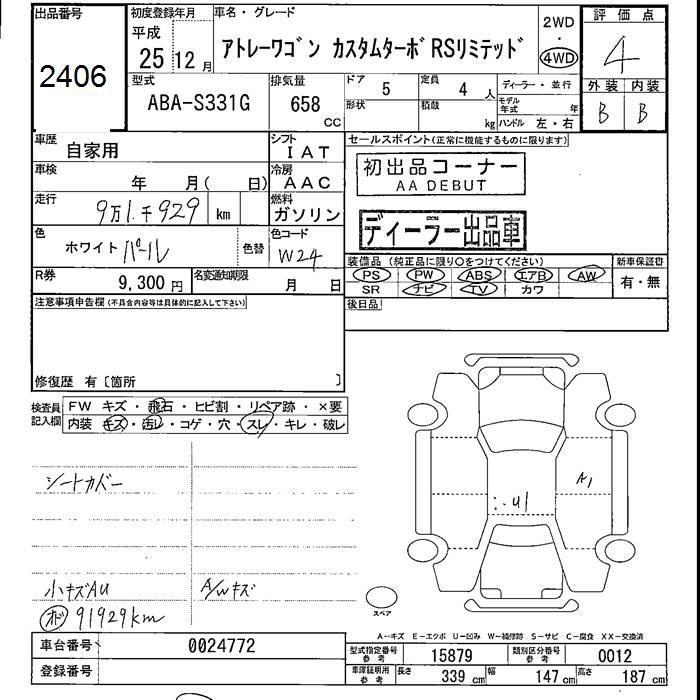 出品番号
2406
初度登録年月
平成
25 12 月
車名・グレード
アトレーワゴン カスタムターボRSリミテッド
2WD
・
4WD
評価点
4
外装 内装
B B
型式
ABA-S331G
排気量
658
CC
ドア
5
定員
4 人
形状
積載
kg
ディーラー・並行
モデル年式 年
ハンドル 左・右
車歴
自家用
シフト
IAT
車検
年 月( 日)
冷房
AAC
走行
9万1千929 km
燃料
ガソリン
色
ホワイトパール
色替
色コード
W24
R券
9,300 円
名変通知期限
月 日
セールスポイント(正常に機能するものに限ります)
初出品コーナー
AA DEBUT
ディーラー出品車
装備品(純正品に限り○をつけてください)
PS PW ABS エアB AW
SR ナビ TV カワ
新車保証書
有・無
後日品
注意事項申告欄(不具合内容等は具体的に記入して下さい)
修復歴 有〔箇所 〕
検査員
記入欄
FW キズ・飛石・ヒビ割・リペア跡・×要
内装 キズ・汚レ・コゲ・穴・スレ・キレ・破レ
シートカバー
小キズAU
A/Wキズ
オド 91929km
A1
U1
スペア
A-キズ E-エクボ U-凹み W-補修跡 S-サビ C-腐食 XX-交換済
車台番号
0024772
登録番号
型式指定番号
参考
15879
類別区分番号
参考
0012
車庫証明用
参考
長さ 339 cm 幅 147 cm 高さ 187 cm